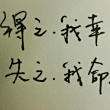 得之·我幸
失之·我命